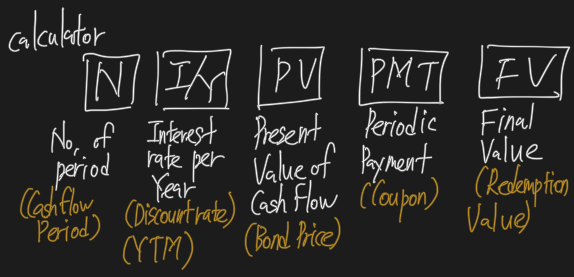 calculator
N I/Yr PV PMT FV
No. of period
(Cashflow Period)
Interest rate per Year
(Discount rate)
(YTM)
Present Value of Cash Flow
(Bond Price)
Periodic Payment
(Coupon)
Final Value
(Redemption Value)